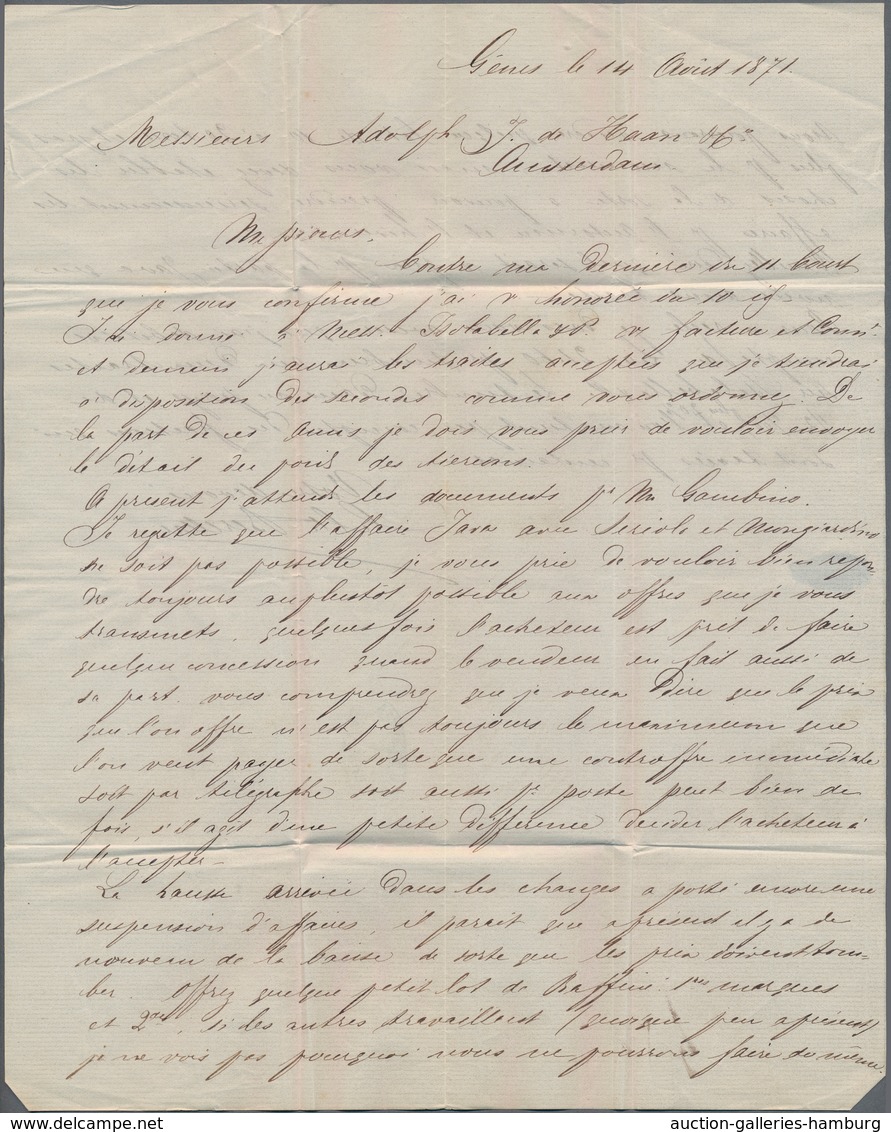 Gênes le 14 Août 1871.
Messieurs Adolph J. de Haan & Co
Amsterdam
Messieurs,
Contre ma dernière du 11 Court
que je vous confirme j'ai v honorée du 10 id
J'ai donné à Mess. Dolabella & v/ facture et Conn.
et demain j'aurai les traites acceptées que je tiendrai
à disposition des secondes comme vous ordonnez. De
la part de ces amis je dois vous prier de vouloir envoyer
le détail du poids des tierçons.
A présent j'attends les documents pr Mr Gambino.
Je regrette que l'affaire Java avec Seriolo et Mongiardino
ne soit pas possible, je vous prie de vouloir bien repon-
dre toujours au plustôt possible aux offres que je vous
transmets, quelques fois l'acheteur est prêt de faire
quelque concession quand le vendeur en fait aussi de
sa part. vous comprendrez que je veux dire que le prix
que l'on offre n'est pas toujours le maximum que
l'on veut payer de sorte que une controffre immédiate
soit par télégraphe soit aussi pr poste peut bien de
fois, s'il agit d'une petite différence décider l'acheteur à
l'accepter —
La hausse arrivée dans les changes a porté encore une
suspension d'affaires, il parait que a présent il y a de
nouveau de la baisse de sorte que les prix doivent tom-
ber. Offrez quelque petit lot de Raffiné 1res marques
et 2des, si les autres travaillent (quoique peu a présent)
je ne vois pas pourquoi nous ne pourrons faire de même.
auction-galleries-hamburg